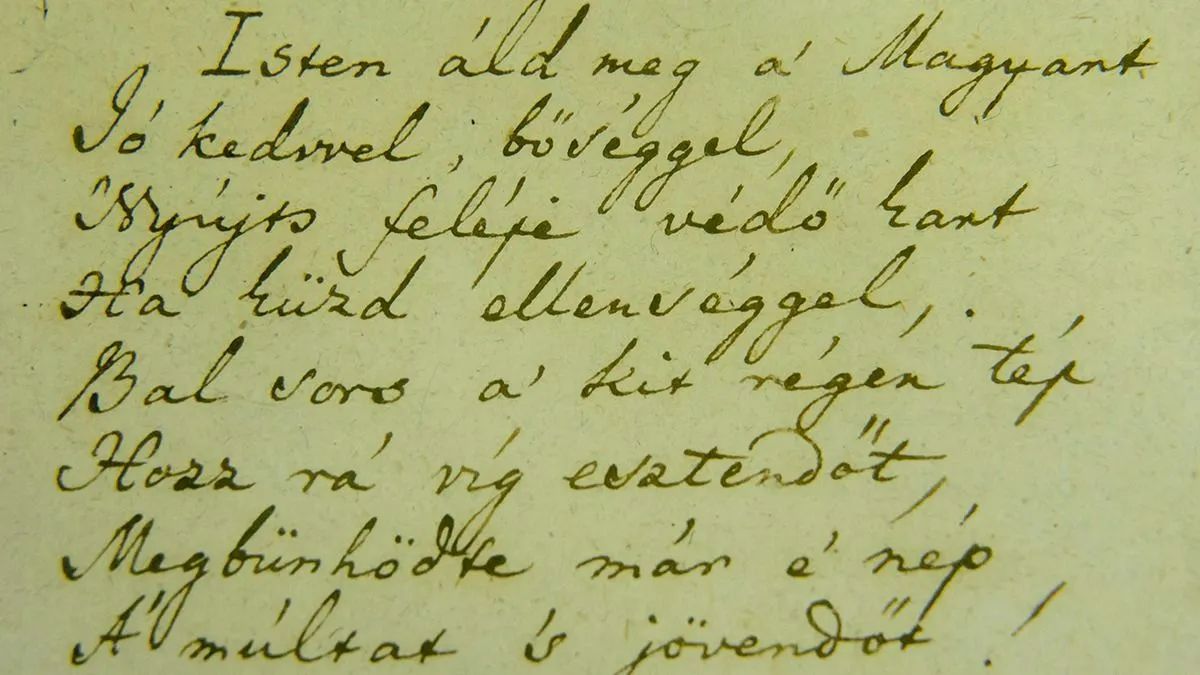 Isten áld meg a' Magyart
Jó kedvvel, bőséggel,
Nyújts feléje védő kart
Ha küzd ellenséggel,
Bal sors a' kit régen tép
Hozz rá víg esztendőt,
Megbünhödte már é nép
A' múltat 's jövendőt!